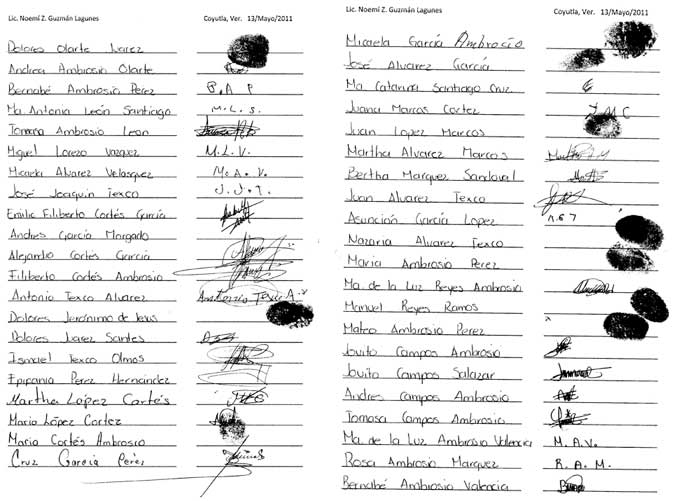 Lic. Noemí Z. Guzmán Lagunes Coyutla, Ver. 13/Mayo/2011
Dolores Olarte Juarez
Andrea Ambrosio Olarte
Bernabé Ambrosio Perez B.A P
Ma. Antonia León Santiago M.L.S.
Tomasa Ambrosio Leon
Miguel Lorezo Vazquez M.L.V.
Micaela Alvarez Velasquez M.A.V.
José Joaquin Texco J.J.T.
Emilio Filiberto Cortés García
Andres García Morgado
Alejandro Cortés García
Filiberto Cortés Ambrosio
Antonio Texco Alvarez Antonio Texco A.
Dolores Jeronimo de Jesus
Dolores Juarez Santes
Ismael Texco Olmos
Epifania Perez Hernandez
Martha López Cortés
Mario López Cortez
Maria Cortés Ambrosio
Cruz García Pérez
Lic. Noemí Z. Guzmán Lagunes Coyutla, Ver. 13/Mayo/2011
Micaela García Ambrosio
José Alvarez García
Ma. Catarina Santiago Cruz
Juana Marcos Cortez J M C
Juan Lopez Marcos
Martha Alvarez Marcos
Bertha Marquez Sandoval
Juan Alvarez Texco
Asunción García Lopez A.G 7
Nazaria Alvarez Texco
Maria Ambrosio Perez
Ma. de la Luz Reyes Ambrosia
Manuel Reyes Ramos
Mateo Ambrosio Perez
Jovito Campos Ambrosio
Jovito Campos Salazar
Andres Campos Ambrosio
Tomasa Campos Ambrosio
Ma. de la Luz Ambrosio Valencia M. A.V.
Rosa Ambrosio Marquez R. A. M.
Bernabé Ambrosio Valencia